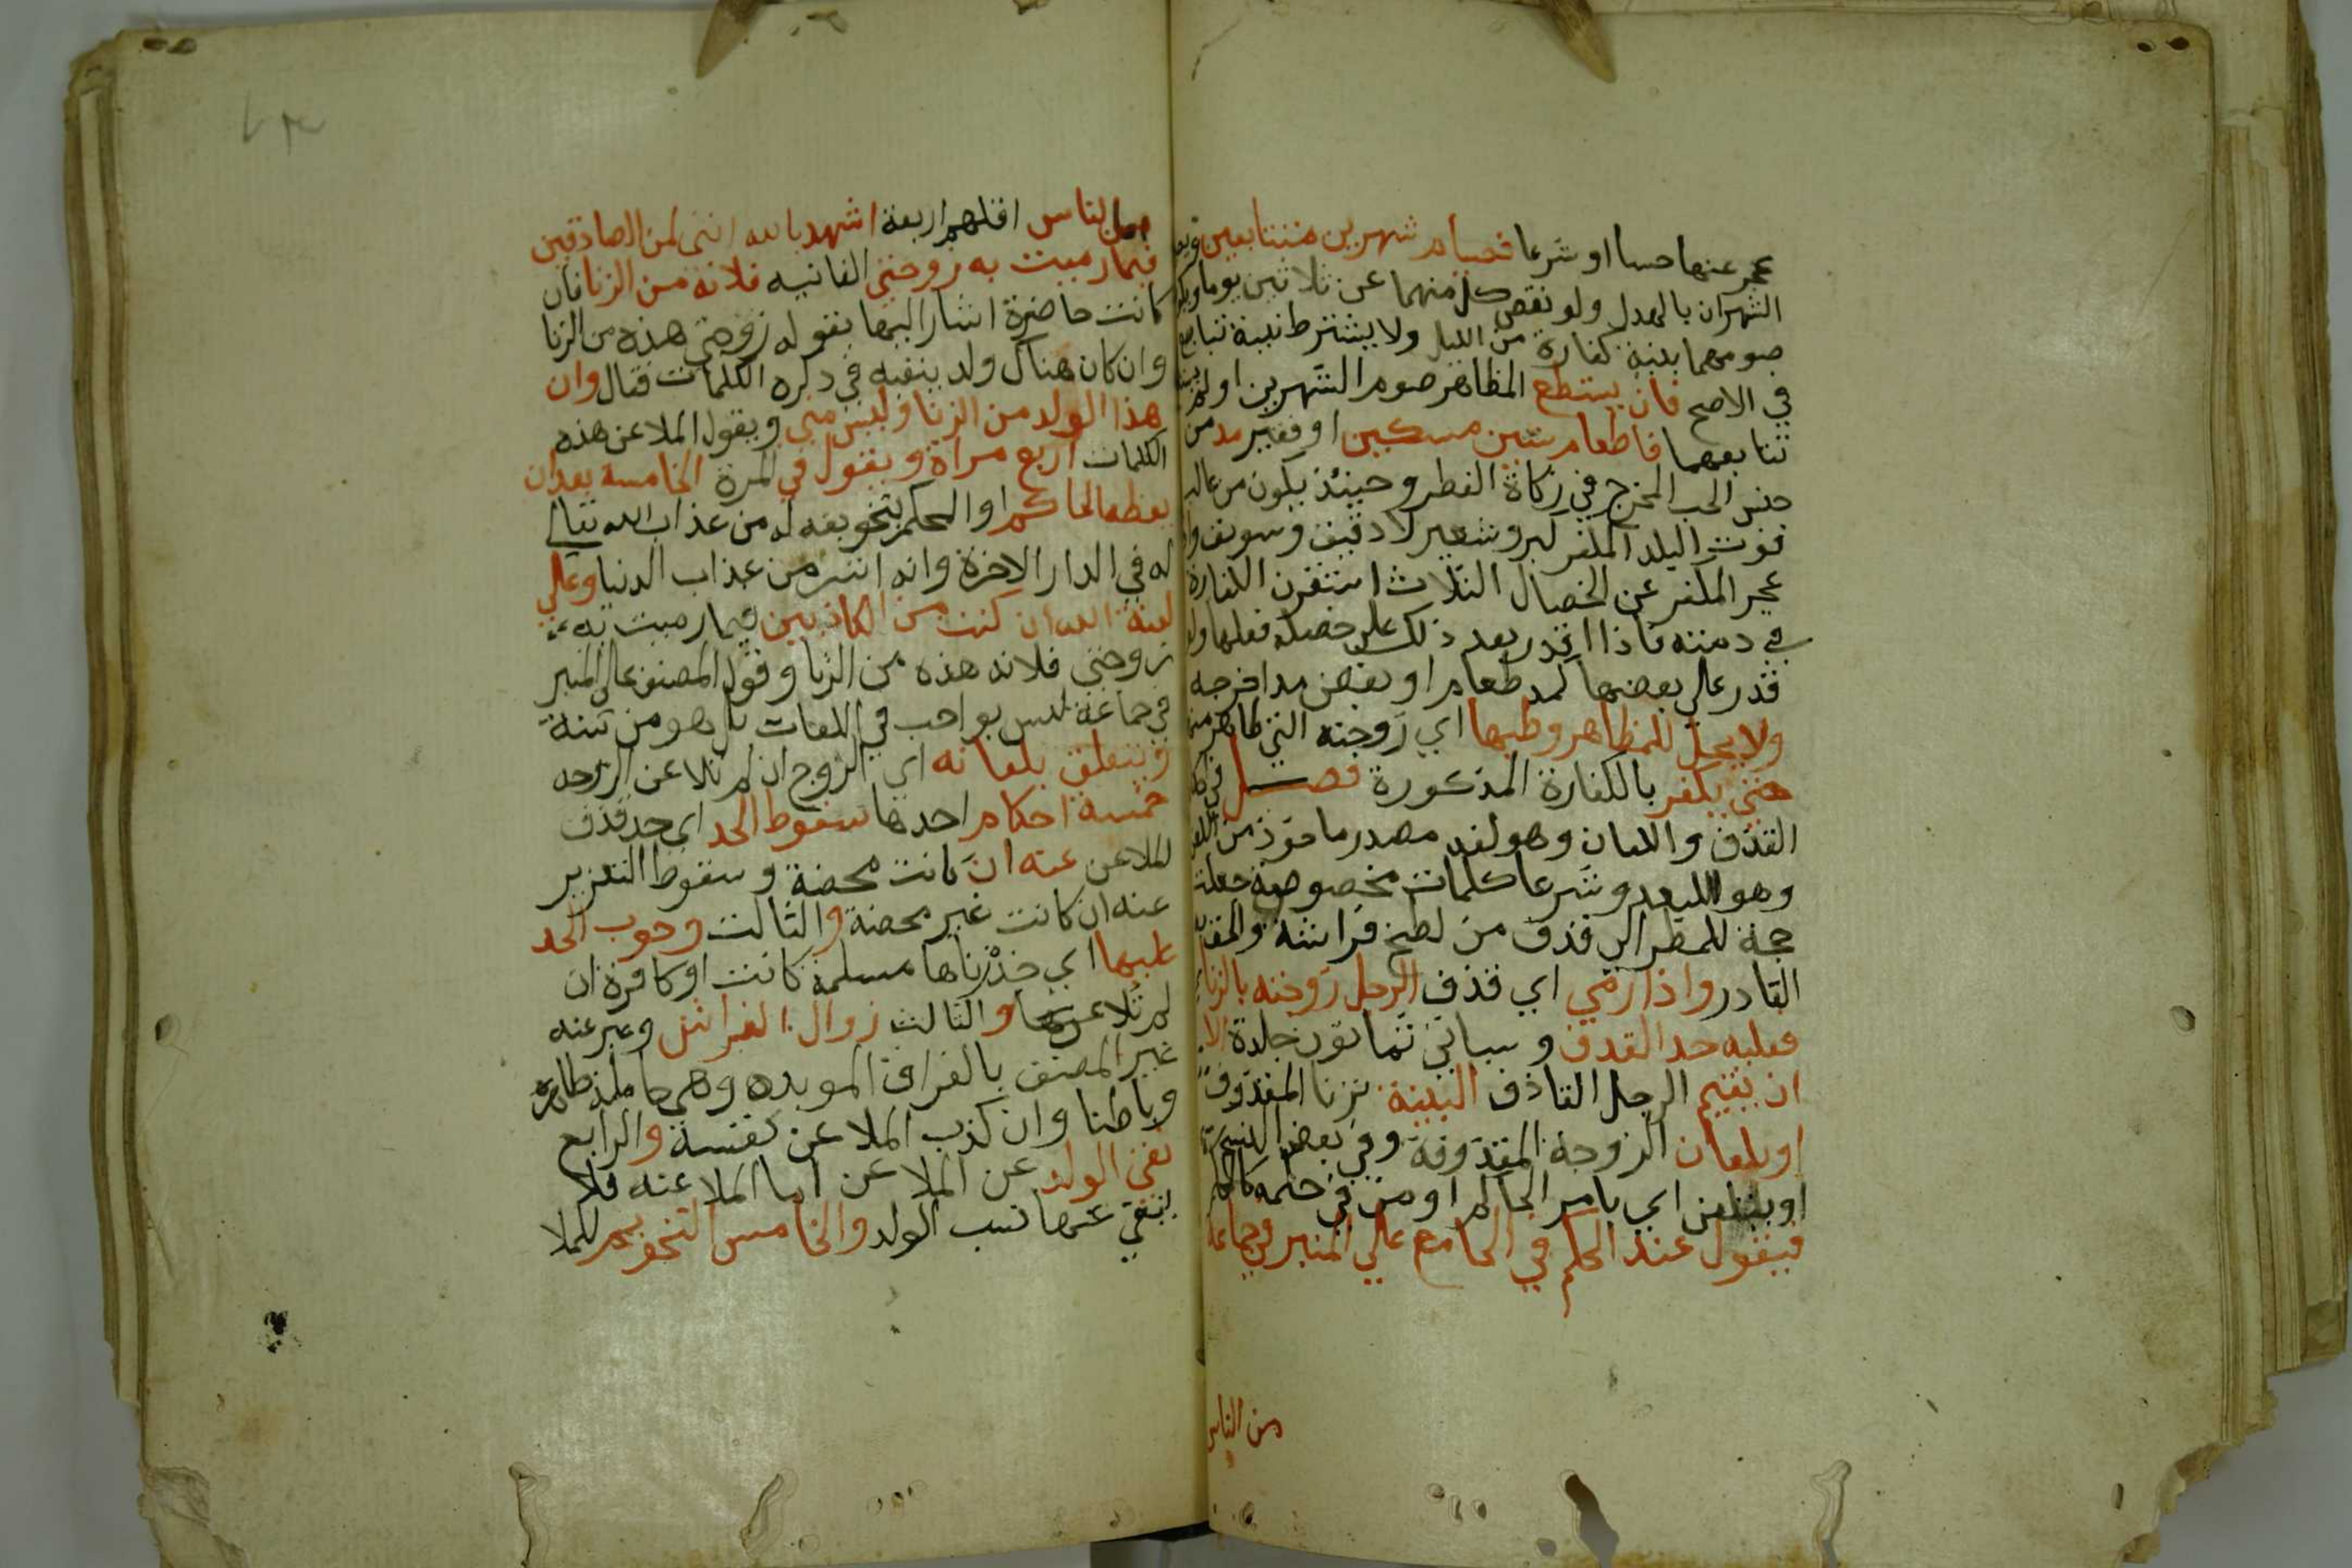 عجز عنها حسا او شرعا فصيام شهرين متتابعين ويعـ
الشهران بالهلال ولو نقص كل منهما عن ثلاثين يوما ويكو
صومهما بنية كفارة من الليل ولا يشترط نية تتابع
في الاصح فان يستطع المظاهر صوم الشهرين او لم
تتابعهما فاطعام ستين مسكين او فقير مد من
جنس الحب المخرج في زكاة الفطر وحينئذ يكون من غالب
قوت البلد المكفر كبر وشعير لا دقيق وسويق وا
عجز المكفر عن الخصال الثلاث استقرت الكفارة
في ذمته فاذا قدر بعد ذلك على خصلة فعلها ولو
قدر على بعضها كمد طعام او بعض مد اخرجه
ولا يحل للمظاهر وطيها اي زوجته التي ظاهر منها
حتي يكفر بالكفارة المذكورة فصل في
القذف واللعان وهو لغة مصدر ماخوذ من اللعن
وهو البعد وشرعا كلمات مخصوصة جعلت
حجة للمضطر الي قذف من لطخ فراشه والحق
القادر واذا رمي اي قذف الرجل زوجته بالزنا
فعليه حد القذف وسياتي ثمانون جلدة الا
ان يقيم الرجل القاذف البينة بزنا المقذوفة
او يلعان الزوجة المقذوفة وفي بعض النسخ
او يلتعن اي بامر الحاكم او من في حكمه كالمحكم
فيقول عند الحكم في الجامع علي المنبر في جماعة
من الناس
من الناس اقلهم اربعة اشهد بالله انني لمن الصادقين
فيما رميت به زوجتي الغائبه فلانة من الزنا فان
كانت حاضرة اشار اليها بقوله زوجتي هذه من الزنا
وان كان هناك ولد ينفيه في ذكره الكلمات فقال وان
هذا الولد من الزنا وليس مني ويقول الملاعن هذه
الكلمات اربع مراة ويقول في المرة الخامسة بعد ان
يعظه الحاكم او المحكم بتخويفه له من عذاب الله تعالي
له في الدار الاخرة وانه اشر من عذاب الدنيا وعلي
لعنة الله ان كنت من الكاذبين فيما رميت به
زوجتي فلانه هذه من الزنا وقول المصنف علي المنبر
في جماعة ليس بواجب في اللعان بل هو من سنة
ويتعلق بلعانه اي الزوج ان لم تلاعن الزوجه
خمسة احكام احدها سقوط الحد اي حد قذف
الملاعن عنه ان كانت محصنة وسقوط التعزير
عنه ان كانت غير محصنة والثالث وجوب الحد
عليها اي حد زناها مسلمة كانت او كافرة ان
لم تلاعن والثالث زوال الفراش وعبر عنه
غير المصنف بالفراق الموبده وهي حاملة ظاهرة
وباطنا وان كذب الملاعن نفسه والرابع
نفي الولد عن الملاعن اما الملاعنه فلا
ينتفي عنها نسب الولد والخامس التحريم للملا